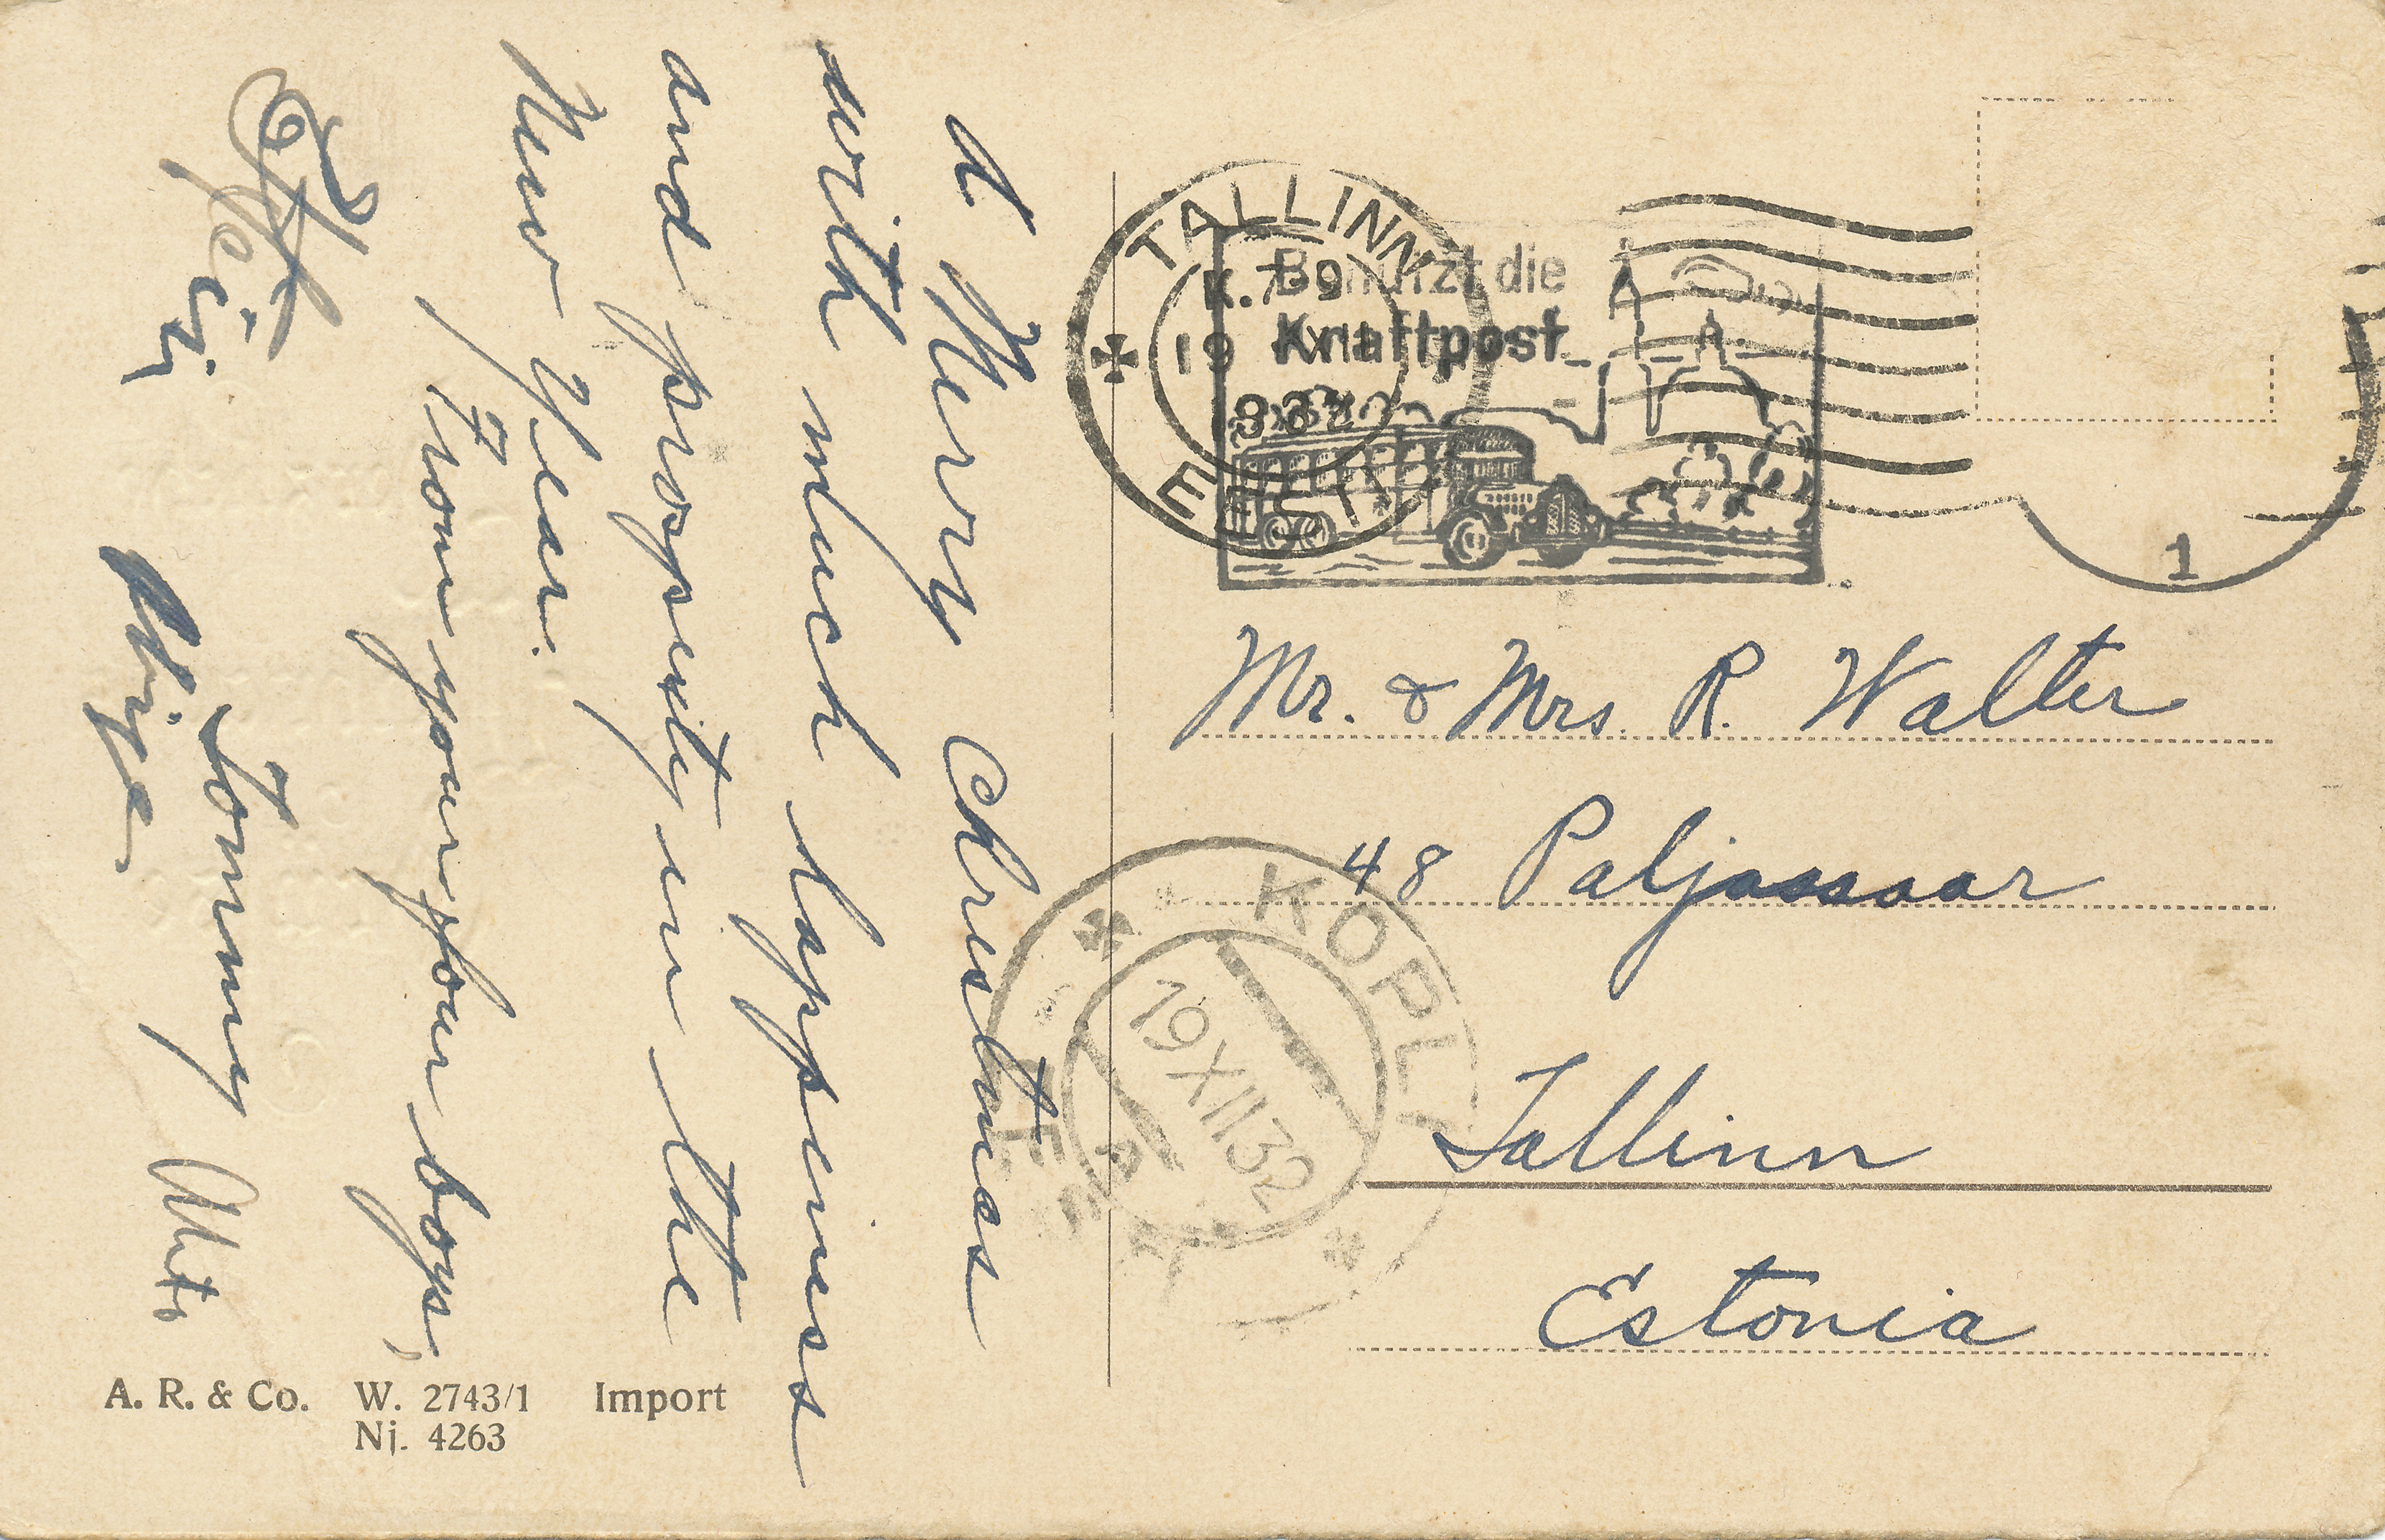 A Merry Christmas
with much happiness
and prosperity in the
New Year.
From your four boys,
Tommy
TALLINN
K.7-9
19 XII
932
EESTI
Benutzt die
Kraftpost
1
Mr. & Mrs. R. Walter
48 Paljassaar
Tallinn
Estonia
KOPLI
19 XII 32
A. R. & Co. W. 2743/1 Import
Nj. 4263